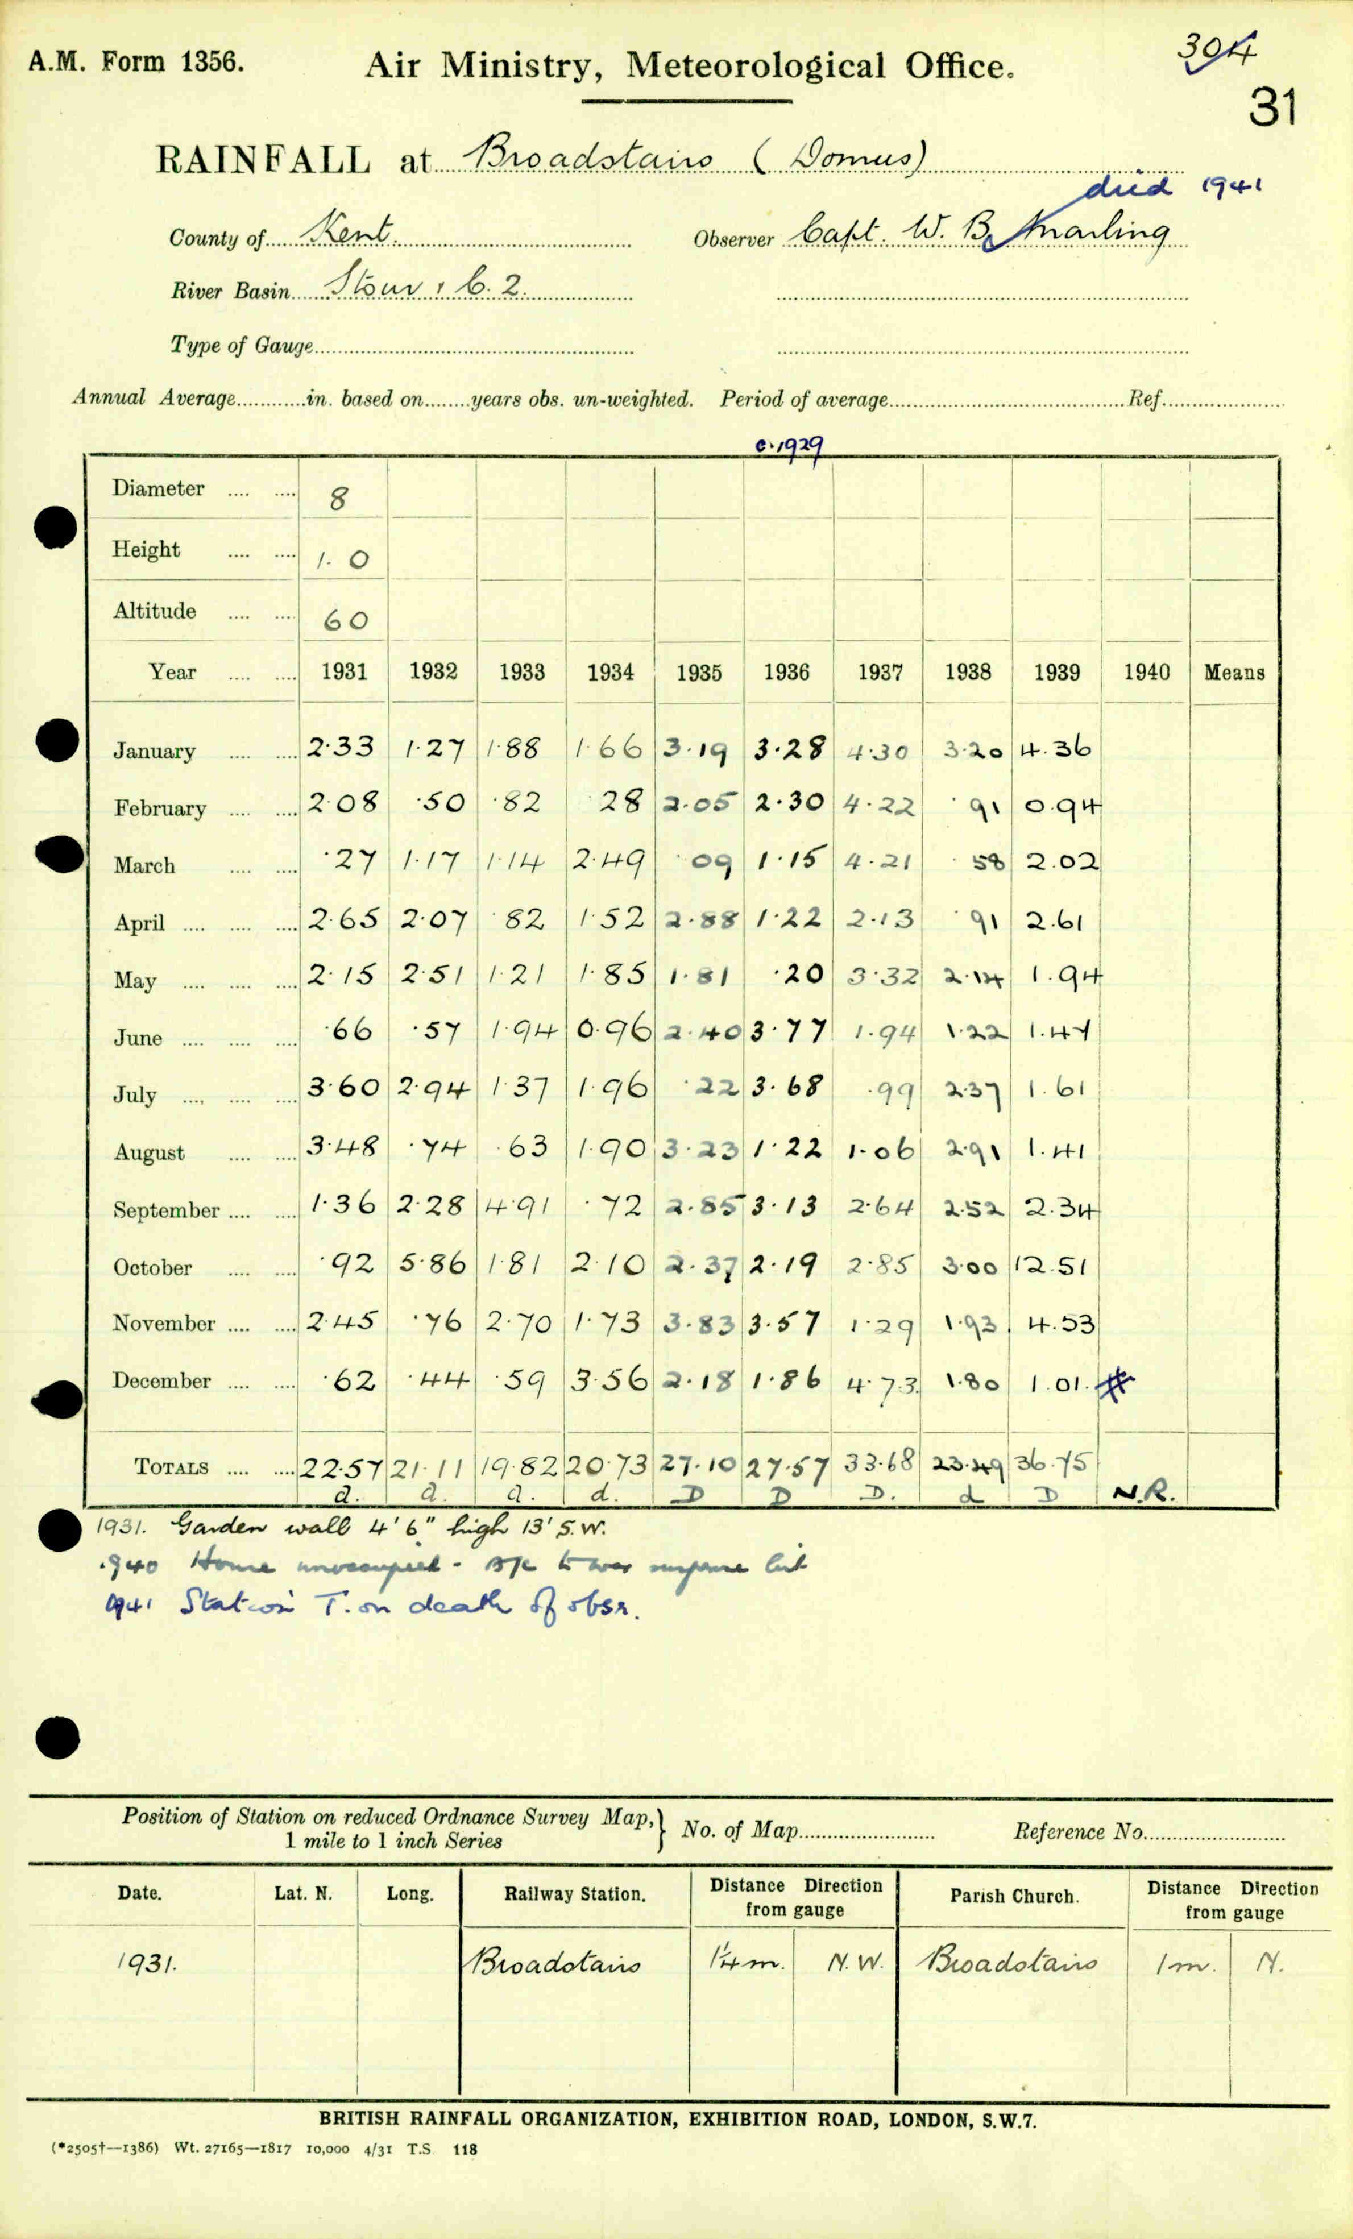 A.M. Form 1356.
Air Ministry, Meteorological Office.
304
31
RAINFALL at Broadstairs (Domus)
died 1941
County of Kent. Observer Capt. W. B. Marling
River Basin Stour & C. 2.
Type of Gauge
Annual Average in. based on years obs. un-weighted. Period of average Ref.
c.1929
Diameter 8
Height 1. 0
Altitude 60
Year 1931 1932 1933 1934 1935 1936 1937 1938 1939 1940 Means
January 2.33 1.27 1.88 1.66 3.19 3.28 4.30 3.20 4.36
February 2.08 .50 .82 28 2.05 2.30 4.22 .91 0.94
March .27 1.17 1.14 2.49 09 1.15 4.21 .58 2.02
April 2.65 2.07 .82 1.52 2.88 1.22 2.13 .91 2.61
May 2.15 2.51 1.21 1.85 1.81 .20 3.32 2.14 1.94
June .66 .57 1.94 0.96 2.40 3.77 1.94 1.22 1.47
July 3.60 2.94 1.37 1.96 .22 3.68 .99 2.37 1.61
August 3.48 .74 .63 1.90 3.23 1.22 1.06 2.91 1.41
September 1.36 2.28 4.91 .72 2.85 3.13 2.64 2.52 2.34
October .92 5.86 1.81 2.10 2.37 2.19 2.85 3.00 12.51
November 2.45 .76 2.70 1.73 3.83 3.57 1.29 1.93 4.53
December .62 .44 .59 3.56 2.18 1.86 4.73 1.80 1.01. #
TOTALS 22.57 21.11 19.82 20.73 27.10 27.57 33.68 23.49 36.75
d. d. d. d. D D D. d D N.R.
1931. Garden wall 4' 6" high 13' S.W.
1940 House unoccupied -
1941 Station T. on death of obsr.
Position of Station on reduced Ordnance Survey Map, } No. of Map Reference No.
1 mile to 1 inch Series
Date. Lat. N. Long. Railway Station. Distance Direction from gauge Parish Church. Distance Direction from gauge
1931. Broadstairs 1¼m. N.W. Broadstairs 1m. N.
BRITISH RAINFALL ORGANIZATION, EXHIBITION ROAD, LONDON, S.W.7.
(*2505†—1386) Wt. 27165—1817 10,000 4/31 T.S 118